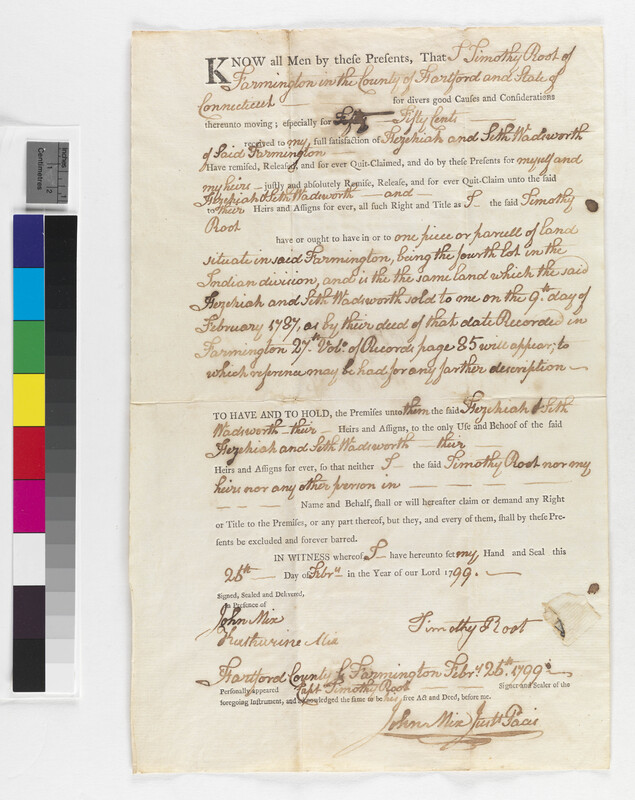 KNOW all Men by these Presents, That I Timothy Root of
Farmington in the County of Hartford and State of
Connecticut — for divers good Causes and Considerations
thereunto moving; especially for Fifty Cents
received to my full satisfaction of Hezekiah and Seth Wadsworth
of Said Farmington —
Have remised, Released, and for ever Quit-Claimed, and do by these Presents for myself and
my heirs — justly and absolutely Remise, Release, and for ever Quit-Claim unto the said
Hezekiah & Seth Wadsworth — and —
to their Heirs and Assigns for ever, all such Right and Title as I — the said Timothy
Root
have or ought to have in or to one piece or parcell of land
situate in said Farmington, being the fourth lot in the
Indian division, and is the the same land which the said
Hezekiah and Seth Wadsworth sold to me on the 9th day of
February 1787, as by their deed of that date Recorded in
Farmington 27th Vol. of Records page 85 will appear; to
which reference may be had for any farther description —
TO HAVE AND TO HOLD, the Premises unto them the said Hezekiah & Seth
Wadsworth — their — Heirs and Assigns, to the only Use and Behoof of the said
Hezekiah and Seth Wadsworth — their
Heirs and Assigns for ever, so that neither I — the said Timothy Root nor my
heirs nor any other person in — — —
— — — Name and Behalf, shall or will hereafter claim or demand any Right
or Title to the Premises, or any part thereof, but they, and every of them, shall by these Pre-
sents be excluded and forever barred.
IN WITNESS whereof I — have hereunto set my Hand and Seal this
25th — Day of Febry in the Year of our Lord 1799. —
Signed, Sealed and Delivered,
in Presence of
John Mix
Katharine Mix
Timothy Root
Hartford County ss Farmington Febry 25th 1799
Personally appeared Capt Timothy Root — Signer and Sealer of the
foregoing Instrument, and acknowledged the same to be his free Act and Deed, before me.
John Mix Just Pacis
Inches
1
Centimetres
2